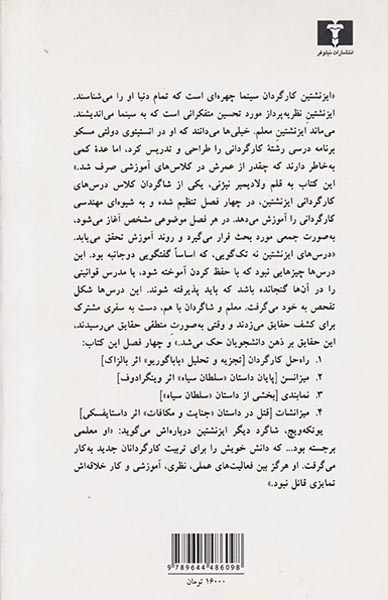 انتشارات نیلوفر
«ایزنشتین کارگردان سینما چهره‌ای است که تمام دنیا او را می‌شناسند.
ایزنشتین نظریه‌پرداز مورد تحسین متفکرانی است که به سینما می‌اندیشند.
می‌ماند ایزنشتین معلم. خیلی‌ها می‌دانند که او در انستیتوی دولتی مسکو
برنامه درسی رشتهٔ کارگردانی را طراحی و تدریس کرد، اما عدهٔ کمی
به‌خاطر دارند که چقدر از عمرش در کلاس‌های آموزشی صرف شد.»
این کتاب به قلم ولادیمیر نیژنی، یکی از شاگردان کلاس درس‌های
کارگردانی ایزنشتین، در چهار فصل تنظیم شده و به شیوه‌ای مهندسی
کارگردانی را آموزش می‌دهد. در هر فصل موضوعی مشخص آغاز می‌شود،
به‌صورت جمعی مورد بحث قرار می‌گیرد و روند آموزش تحقق می‌یابد.
«درس‌های ایزنشتین نه تک‌گویی، که اساساً گفتگویی دوجانبه بود. این
درس‌ها چیزهایی نبود که با حفظ کردن آموخته شود، یا مدرس قوانینی
را در آن‌ها گنجانده باشد که باید پذیرفته شوند. این درس‌ها شکل
تفحص به خود می‌گرفت. معلم و شاگردان با هم، دست به سفری مشترک
برای کشف حقایق می‌زدند و وقتی به‌صورت منطقی حقایق می‌رسیدند،
این حقایق بر ذهن دانشجویان حک می‌شد.» و چهار فصل این کتاب:
۱. راه‌حل کارگردان [تجزیه و تحلیل «باباگوریو» اثر بالزاک]
۲. میزانسن [پایان داستان «سلطان سیاه» اثر وینگرادوف]
۳. نمابندی [بخشی از داستان «سلطان سیاه»]
۴. میزانشات [قتل در داستان «جنایت و مکافات» اثر داستایفسکی]
یوتکه‌ویچ، شاگرد دیگر ایزنشتین درباره‌اش می‌گوید: «او معلمی
برجسته بود... که دانش خویش را برای تربیت کارگردانان جدید به‌کار
می‌گرفت. او هرگز بین فعالیت‌های عملی، نظری، آموزشی و کار خلاقه‌اش
تمایزی قائل نبود.»
9 789644 486098
۱۶۰۰۰ تومان